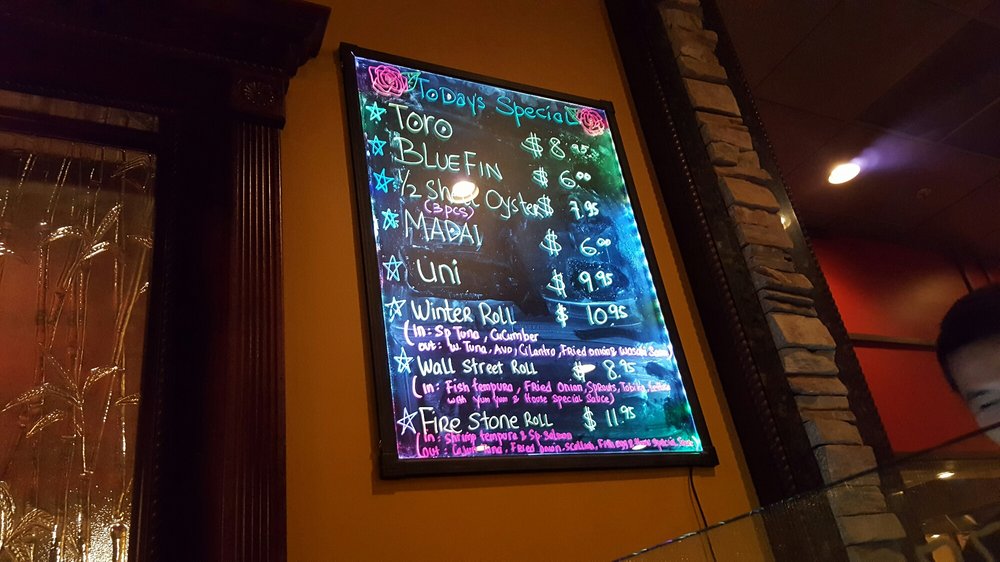 Today's Special
Toro $8.95
BlueFin $6.00
1/2 Shell Oyster $7.95
(3pcs)
MADAI $6.00
Uni $9.95
Winter Roll $10.95
(in: Sp Tuna, Cucumber
out: W. Tuna, Avo, Cilantro, Fried onion & Wasabi
Wall Street Roll $8.95
(in: Fish tempura, Fried Onion, Sprouts, Tobiko,
with Yum Yum & House Special Sauce)
Fire Stone Roll $11.95
(in: Shrimp tempura & Sp Salmon
out: Tuna, Fried Onion, Scallion, Fish egg & House Special